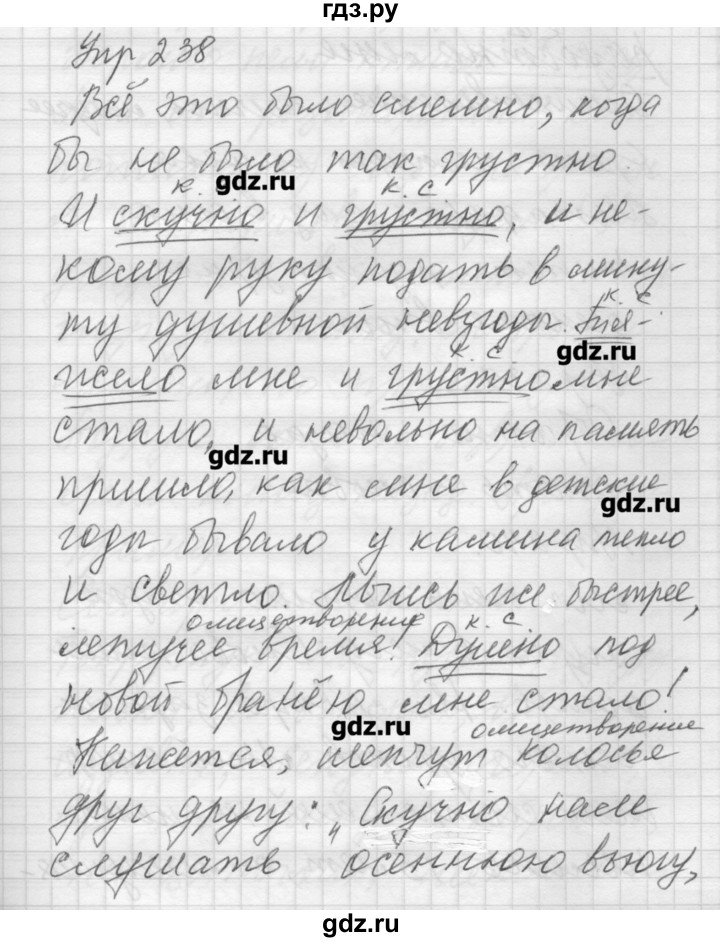 гдз.ру
Упр 238
Всё это было смешно, когда
бы не было так грустно.
к. gdz.ru к. с
И скучно и грустно, и не-
кому руку подать в мину-
к. с
ту душевной невзгоды. Тя-
к. с gdz.ru
жело мне и грустно мне
стало, и невольно на память
gdz.ru
пришло, как мне в детские
gdz.ru
годы бывало у камина тепло
и светло. Мчись же быстрее,
олицетворение к. с
летучее время! Душно под
новой бронёю мне стало!
gdz.ru олицетворение
Кажется, шепчут колосья
друг другу: „Скучно нам
слушать осеннюю вьюгу,
gdz.ru